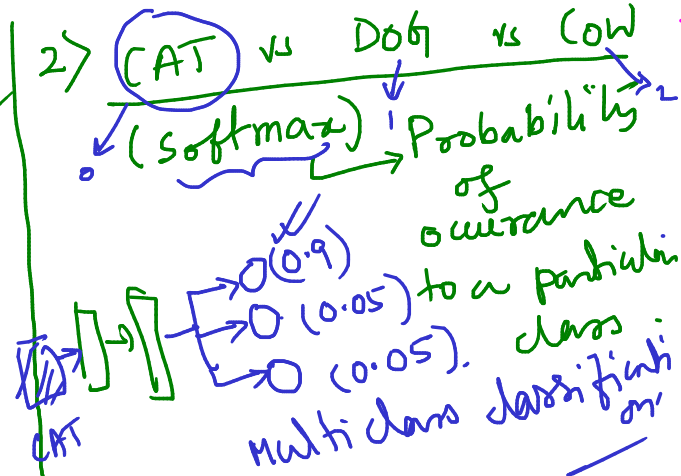 2> CAT vs DOG vs COW
0 1 2
(softmax) → Probability
of
occurance
to a particular
class.
(0.9)
(0.05)
(0.05).
CAT
Multiclass classificati
on